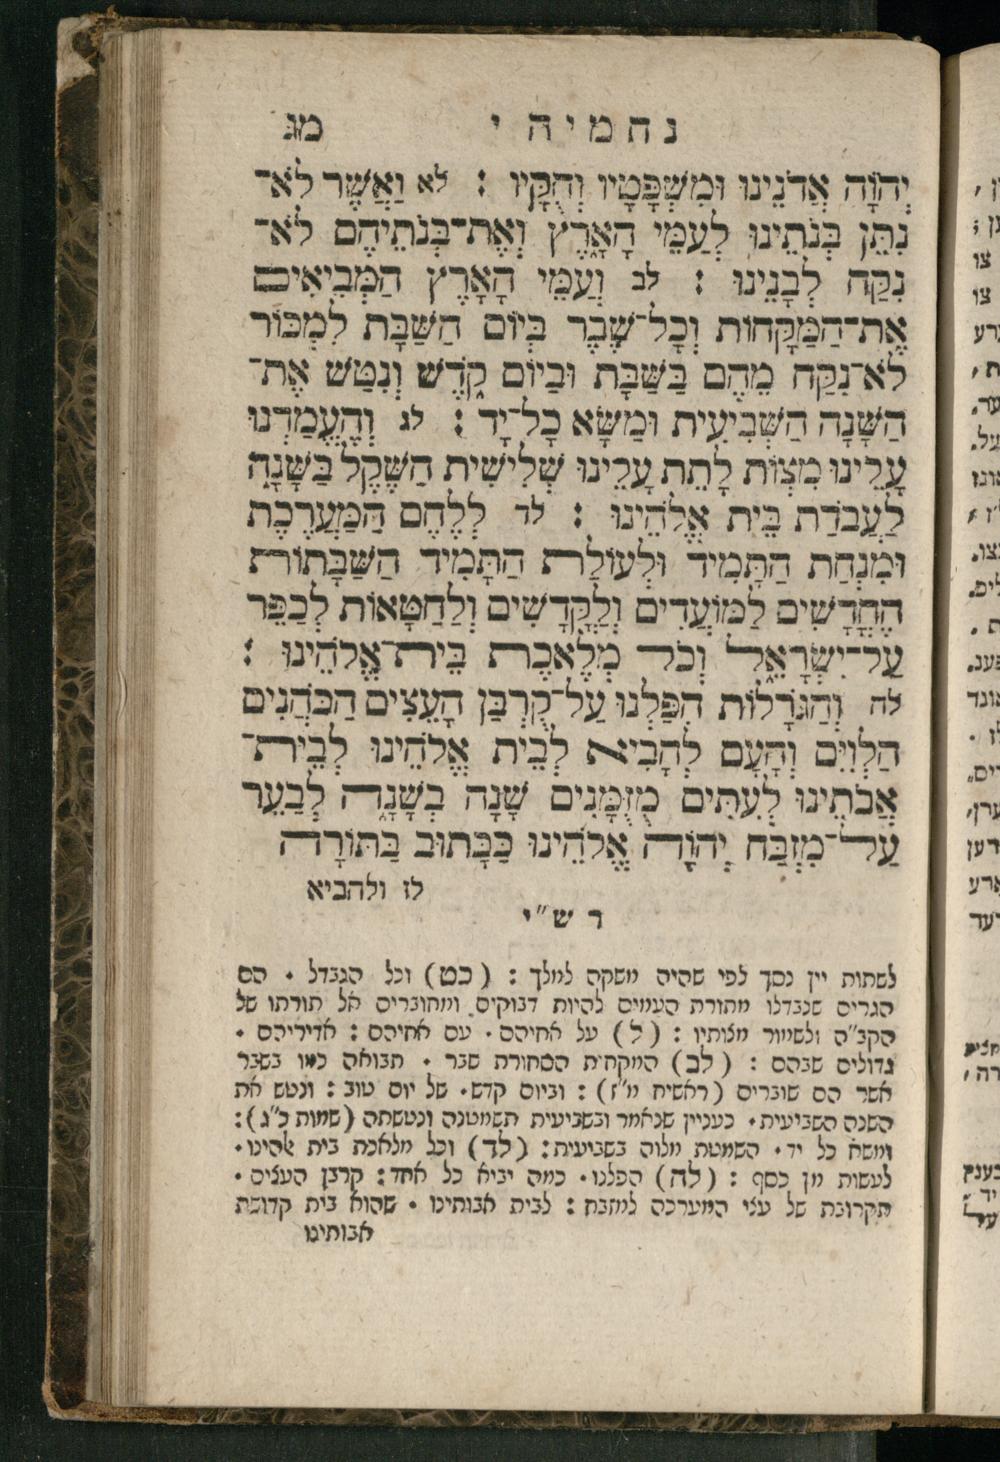 נחמיה י מג
יְהוָֹה אֲדֹנֵינוּ וּמִשְׁפָּטָיו וְחֻקָּיו : לא וַאֲשֶׁר לֹא־
נִתֵּן בְּנֹתֵינוּ לְעַמֵּי הָאָרֶץ וְאֶת־בְּנֹתֵיהֶם לֹא־
נִקַּח לְבָנֵינוּ : לב וְעַמֵּי הָאָרֶץ הַמְּבִיאִים
אֶת־הַמַּקָּחוֹת וְכָל־שֶׁבֶר בְּיוֹם הַשַּׁבָּת לִמְכּוֹר
לֹא־נִקַּח מֵהֶם בַּשַּׁבָּת וּבְיוֹם קֹדֶשׁ וְנִטַּשׁ אֶת־
הַשָּׁנָה הַשְּׁבִיעִית וּמַשָּׁא כָל־יָד : לג וְהֶעֱמַדְנוּ
עָלֵינוּ מִצְוֹת לָתֵת עָלֵינוּ שְׁלִישִׁית הַשֶּׁקֶל בַּשָּׁנָה
לַעֲבֹדַת בֵּית אֱלֹהֵינוּ : לד לְלֶחֶם הַמַּעֲרֶכֶת
וּמִנְחַת הַתָּמִיד וּלְעוֹלַת הַתָּמִיד הַשַּׁבָּתוֹת
הֶחֳדָשִׁים לַמּוֹעֲדִים וְלַקֳּדָשִׁים וְלַחַטָּאוֹת לְכַפֵּר
עַל־יִשְׂרָאֵל וְכֹל מְלֶאכֶת בֵּית־אֱלֹהֵינוּ :
לה וְהַגּוֹרָלוֹת הִפַּלְנוּ עַל־קֻרְבַּן הָעֵצִים הַכֹּהֲנִים
הַלְוִיִּם וְהָעָם לְהָבִיא לְבֵית אֱלֹהֵינוּ לְבֵית־
אֲבֹתֵינוּ לְעִתִּים מְזֻמָּנִים שָׁנָה בְשָׁנָה לְבַעֵר
עַל־מִזְבַּח יְהוָֹה אֱלֹהֵינוּ כַּכָּתוּב בַּתּוֹרָה
לז ולהביא
רש״י
לשתות יין נסך לפי שהיה משקה למלך : (כט) וכל הנבדל • הם
הגרים שנבדלו מתורת העמים להיות דבוקים ומחוברים אל תורתו של
הקב״ה ולשמור מצותיו : (ל) על אחיהם • עם אחיהם : אדיריהם •
גדולים שבהם : (לב) המקחות הסחורה שבר • תבואה כמו בשבר
אשר הם שוברים (ראשית מ״ז) : וביום קדש • של יום טוב : ונטש את
השנה השביעית • כעניין שנאמר ובשביעית תשמטנה ונטשתה (שמות כ״ג) :
ומשא כל יד • השמטת מלוה בשביעית : (לד) וכל מלאכת בית אלהינו •
לעשות מן כסף : (לה) הפלנו • כמה יביא כל אחד : קרבן העצים •
תקרובת של עצי המערכה למזבח : לבית אבותינו • שהוא בית קדושת
אבותינו